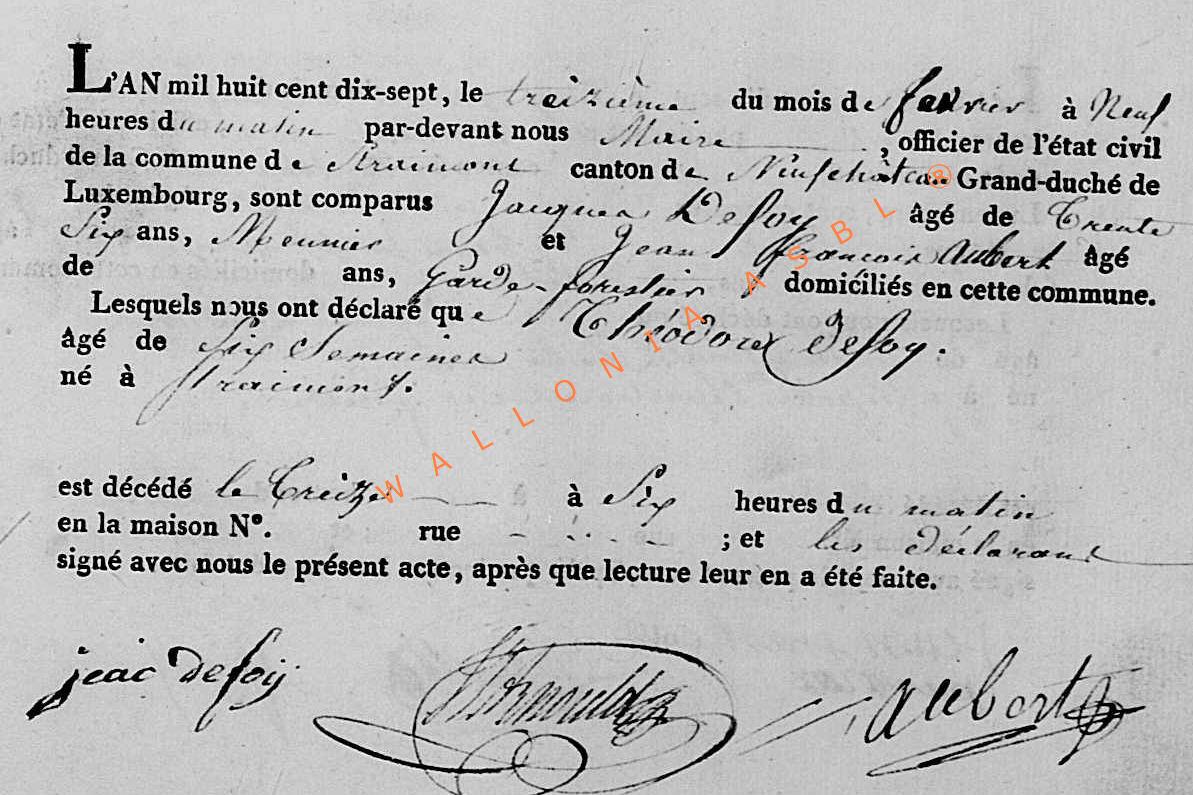 L'AN mil huit cent dix-sept, le treizième du mois de fevrier à Neuf
heures du matin par-devant nous Maire , officier de l'état civil
de la commune de Straimont canton de Neufchateau Grand-duché de
Luxembourg, sont comparus Jacques Defoy âgé de Trente
Six ans, Meunier et Jean francois Aubert âgé
de ans, Garde-forestier domiciliés en cette commune.
Lesquels nous ont déclaré que Théodore Defoy.
âgé de Six Semaines
né à Straimont.
est décédé le Treize à Six heures du matin
en la maison N°. rue ; et les déclarant
signé avec nous le présent acte, après que lecture leur en a été faite.
jeac defoij aubert
WALLONIA ASBL ®